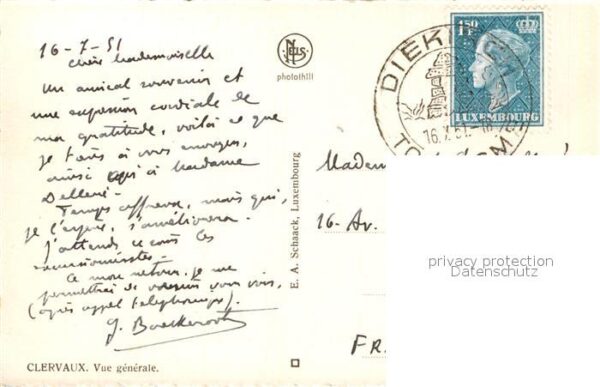 16-7-51
Chère Mademoiselle
Un amical souvenir et
une expression cordiale de
ma gratitude, voilà ce que
je tiens à vous envoyer,
ainsi qu'à Madame
Temps affreux, mais qui,
je l'espère, s'améliorera.
J'attends ce soir les
excursionnistes.
A mon retour, je me
permettrai de vous voir,
(après appel téléphonique).
CLERVAUX. Vue générale.
NELS
photothill
E. A. Schaack, Luxembourg
DIEKIRCH
16.
1F50
LUXEMBOURG
Madem
16 - Av.
FR
privacy protection
Datenschutz